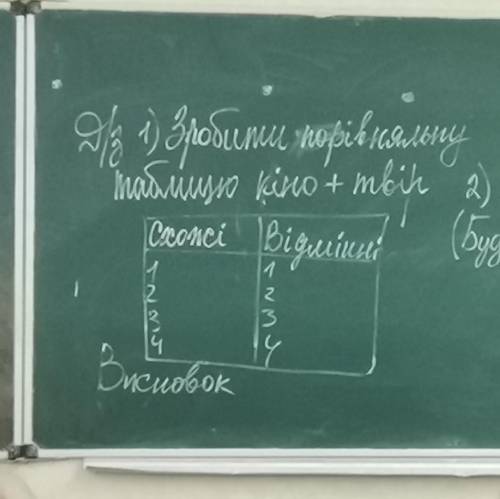 Д/з 1) Зробити порівняльну
таблицю кіно + твір 2)
(Буд
Схожі Відмінні
1 1
2 2
3 3
4 4
Висновок